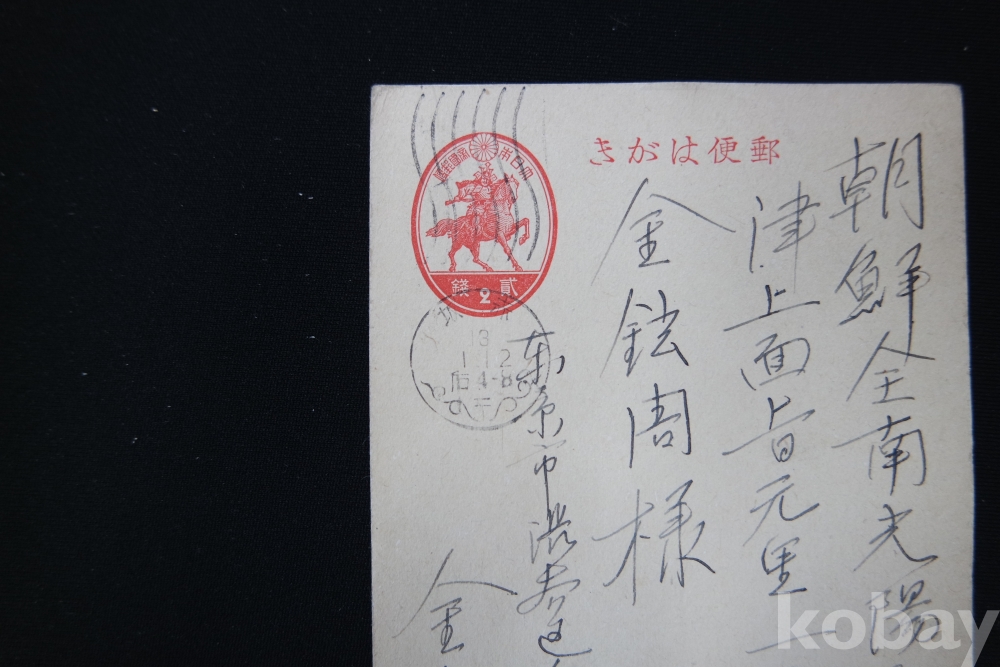 郵便はがき
大日本帝國郵便
貳 2 錢
13
1.12
后4-8
朝鮮全南光陽
津上面旨元里一
金鉉周様
東京市渋谷区
金
kobay